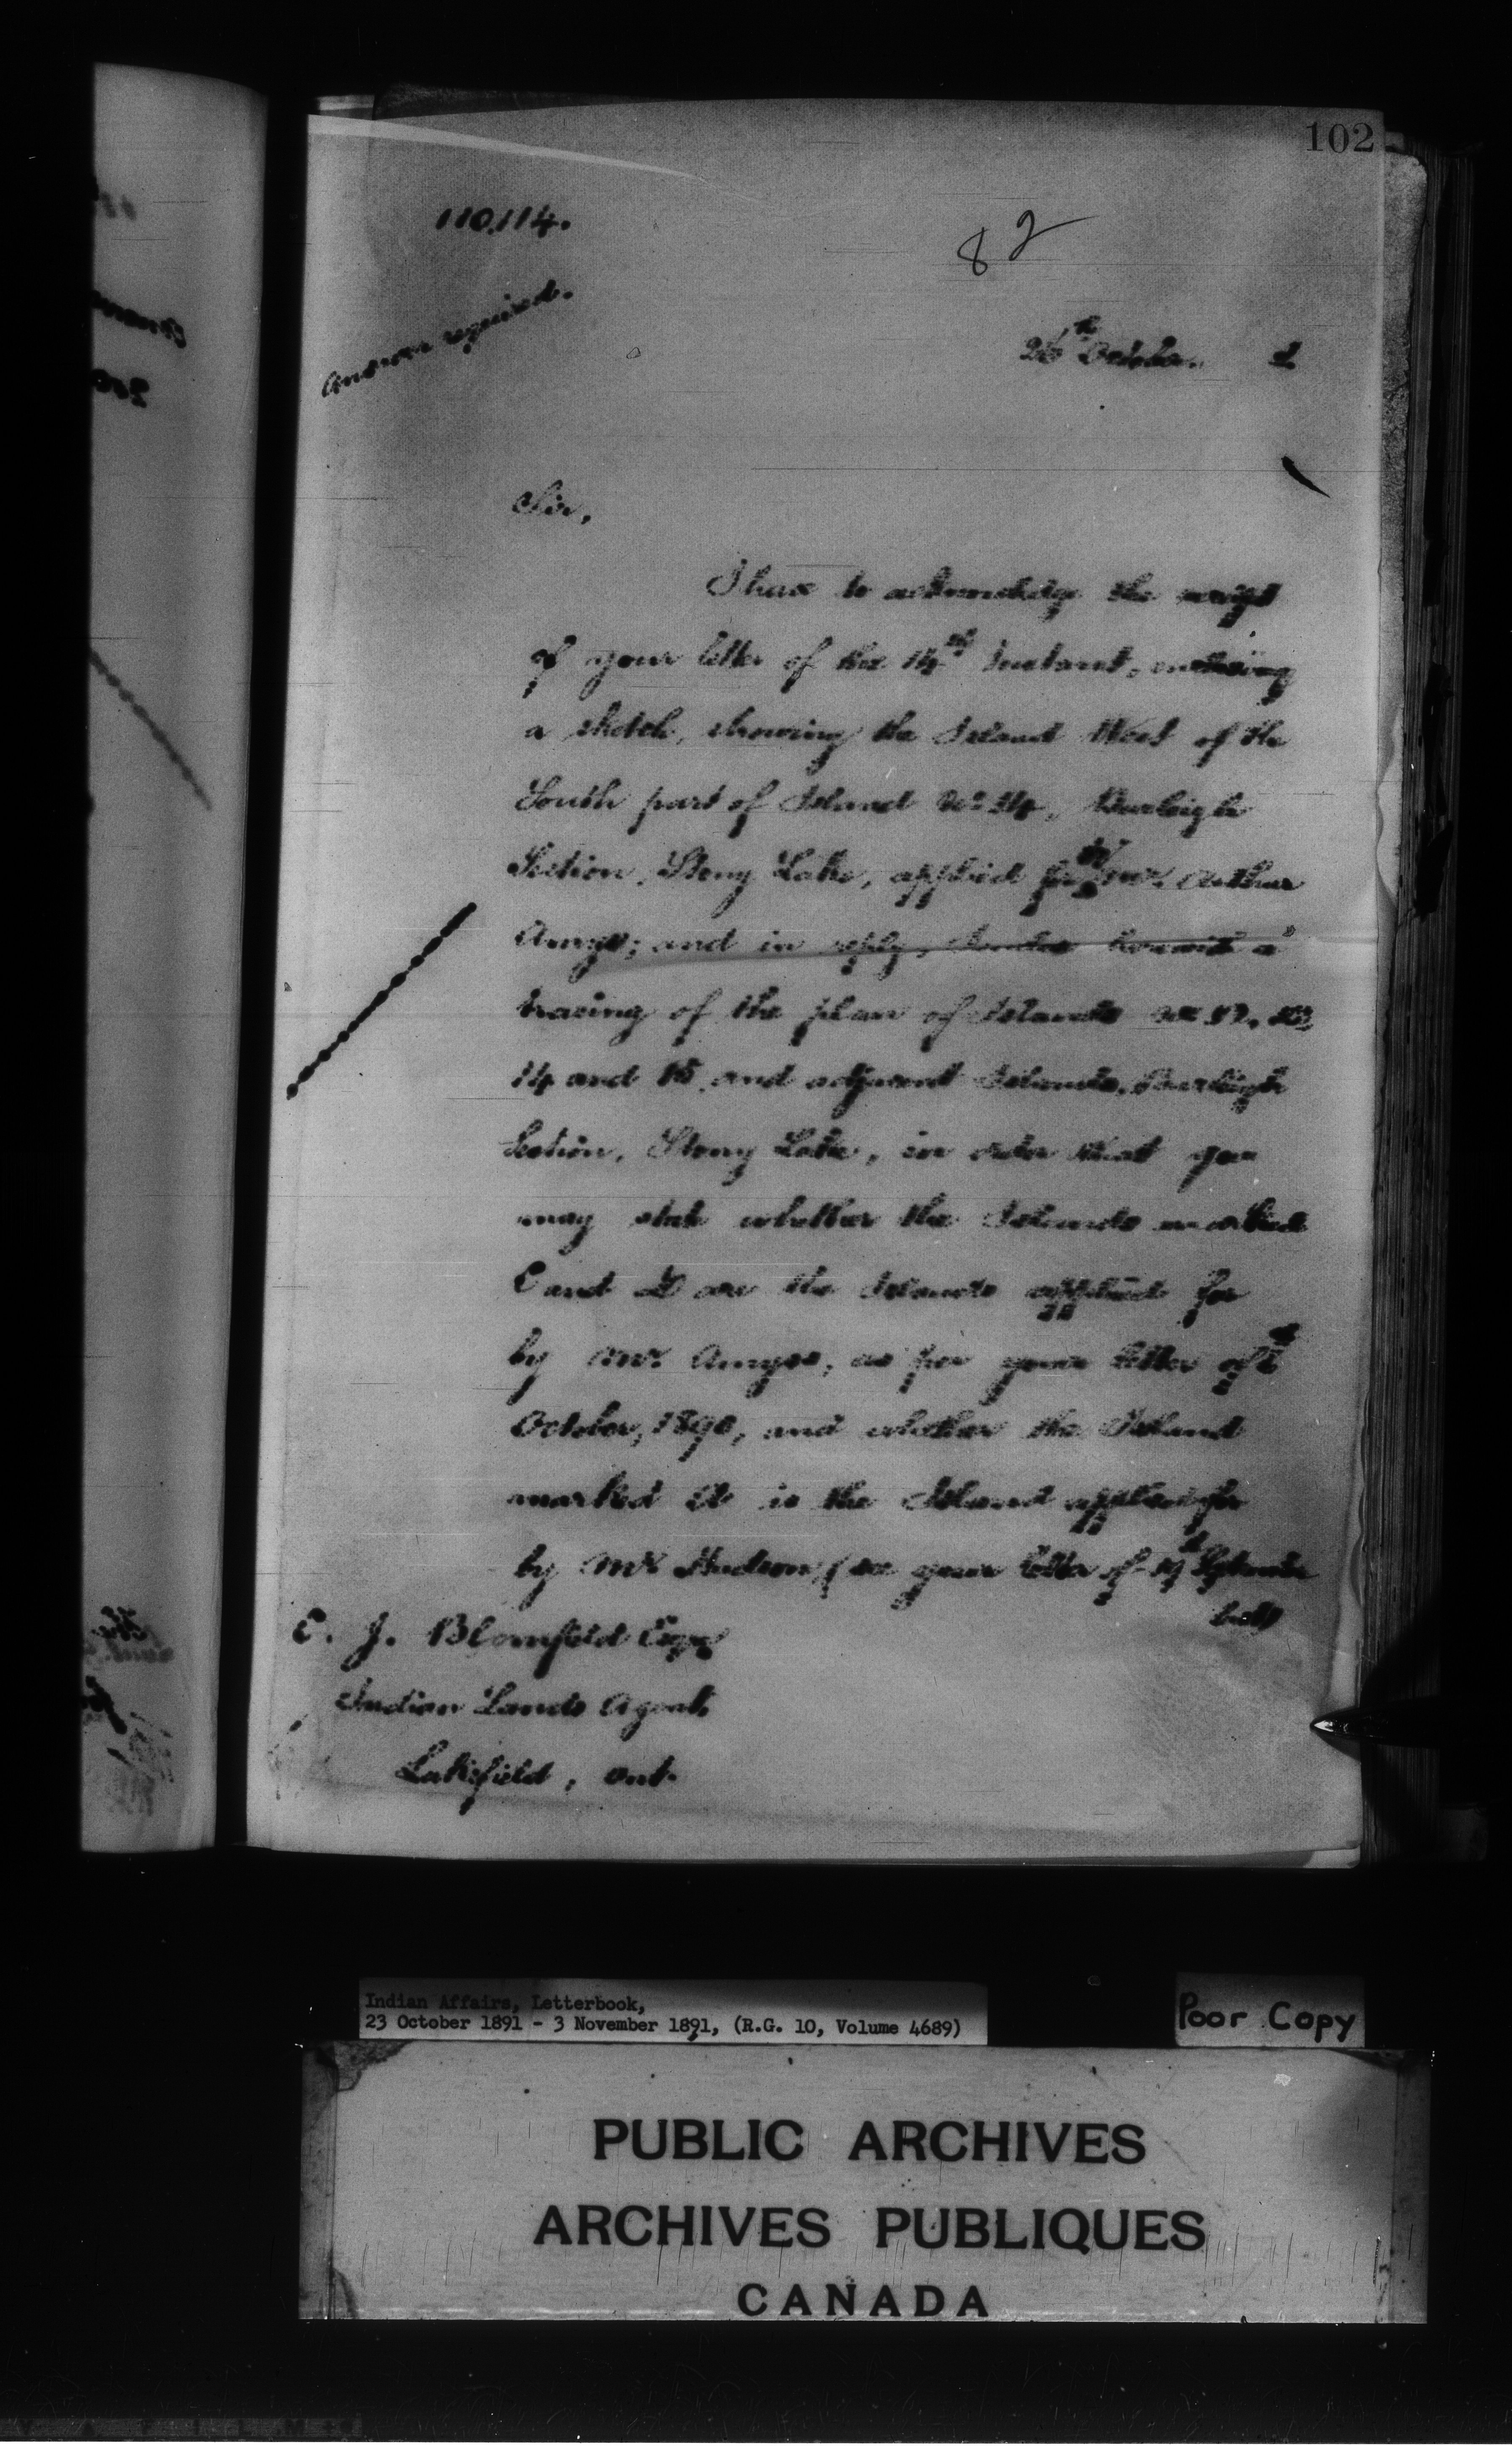 102
110,114.
82
Answer required.
26th October. 1
Sir,
I have to acknowledge the receipt
of your letter of the 14th Instant, enclosing
a sketch, showing the Island West of the
South part of Island No 14, Burleigh
Section, Stony Lake, applied for by Mr. Arthur
Amys; and in reply, herewith a
tracing of the plan of Islands
14 and 15, and adjacent Islands, Burleigh
Section, Stony Lake, in order that you
may state whether the Islands marked
C and D are the Islands applied for
by Mr. Amys, as per your letter of
October, 1890, and whether the Island
marked is the Island applied for
by Mr Hudson, (see your letter of 19th September
last)
C. J. Blomfield Esqr
Indian Lands Agent,
Lakefield, Ont.
Indian Affairs, Letterbook,
23 October 1891 - 3 November 1891, (R.G. 10, Volume 4689)
Poor Copy
PUBLIC ARCHIVES
ARCHIVES PUBLIQUES
CANADA